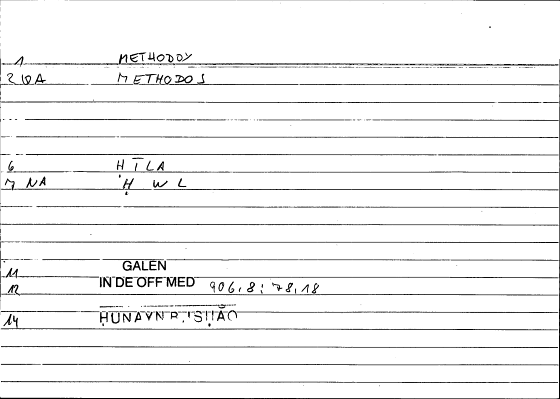 1 METHODOY
2 QA METHODOS
6 ḤĪLA
7 NA Ḥ W L
11 GALEN
12 IN DE OFF MED 906,8 : 78,18
14 ḤUNAYN B. 'ISḤĀQ